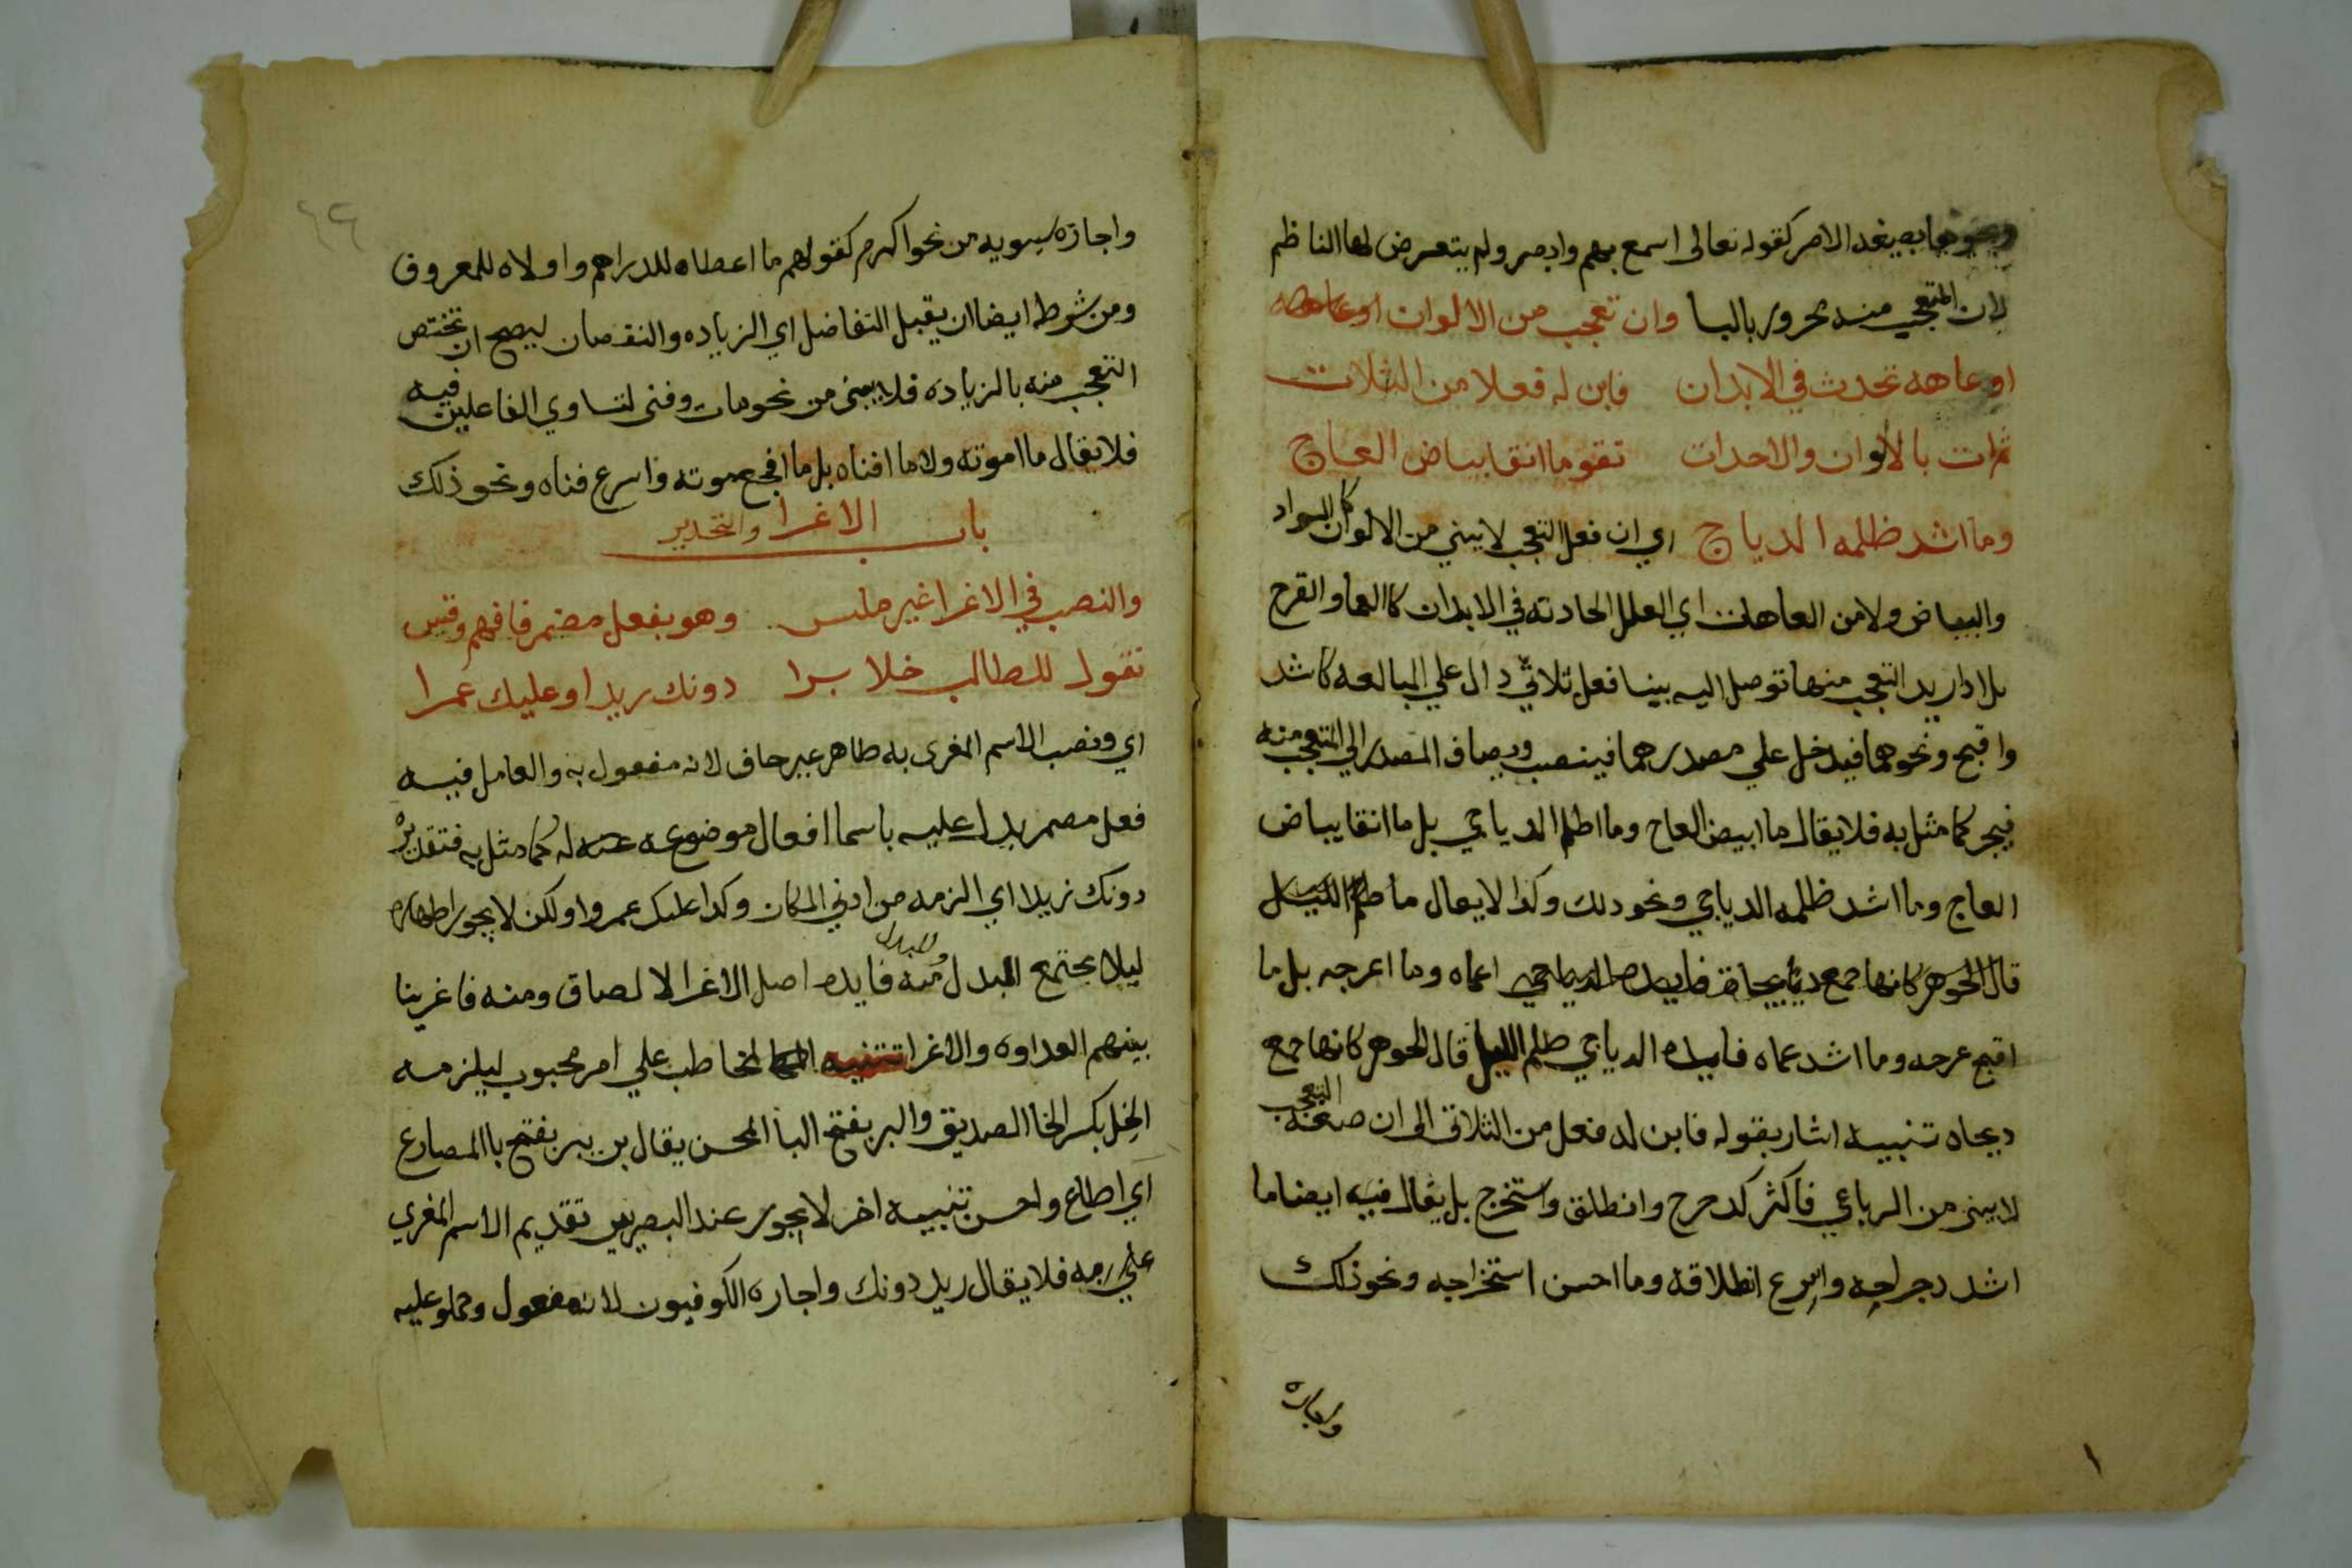 ونحوها بصيغه الامر كقوله تعالى اسمع بهم وابصر ولم يتعرض لها الناظم
لان المتعجب منه مجرور بالبا وان تعجب من الالوان
او عاهه تحدث في الابدان فابن له فعلا من الثلاث
ثم ات بالالوان والاحداث تقو ما انقا بياض العاج
وما اشد ظلمه الدياج اي ان فعل التعجب لا يبني من الالوان كالسواد
والبياض ولا من العاهات اي العلل الحادثه في الابدان كالعما والقرح
بل اذا اريد التعجب منها توصل اليه ببنا فعل ثلاثي دال علي المبالغه كاشد
واقبح ونحوهما فيدخل علي مصدرهما فينصب ويضاف المصدر الي المتعجب منه
فيجر كما مثل به فلا يقال ما ابيض العاج وما اظلم الدياجي بل ما انقا بياض
العاج وما اشد ظلمه الدياجي ونحو ذلك وكذا لا يقال ما
قال الجوهر كانها جمع اعماه وما اعرجه بل ما
اقبح عرجه وما اشد عماه فايده الدياجي ظلم الليل قال الجوهر كانها جمع
ديجاه تنبيه اشار بقوله فابن له فعل من الثلاثي الى ان صيغة التعجب
لا يبنى من الرباعي فاكثر كدحرج وانطلق واستخرج بل يقال فيه ايضا ما
اشد دحراجه واسرع انطلاقه وما احسن استخراجه ونحو ذلك
واجازه
واجازه سيبويه من نحو اكرم كقولهم ما اعطاه للدراهم واولاه للمعروف
ومن شروطه ايضا ان يقبل التفاضل اي الزياده والنقصان ليصح ان تختص
التعجب منه بالزياده فلا يبنى من نحو مات وفنى لتساوي الفاعلين فيه
فلا يقال ما اموته ولا ما افناه بل ما افجع موته واسرع فناه ونحو ذلك
باب الاغرا والتحدير
والنصب في الاغرا غير ملبس وهو بفعل مضمر فافهم وقيس
تقول للطالب خلا برا دونك زيدا وعليك عمرا
اي ونصب الاسم المغرى به ظاهر غير خاف لانه مفعول به والعامل فيه
فعل مضمر يدل عليه باسما افعال موضوعه له كما مثل به فتقديره
دونك زيدا اي الزمه من ادني المكان وكذا عليك عمروا ولكن لا يجوز اظهاره
ليلا يجتمع البدل والمبدل منه فايده اصل الاغرا الالصاق ومنه فاغرينا
بينهم العداوه والاغرا تنبيه المخاطب علي امر محبوب ليلزمه
الخل بكسر الخا الصديق والبر بفتح البا المحسن يقال بر يبر بفتح با المضارع
اي اطاع واحسن تنبيه اخر لا يجوز عند البصريين تقديم الاسم المغري
علي فلا يقال زيد دونك واجازه الكوفيون لانه مفعول وحملو عليه